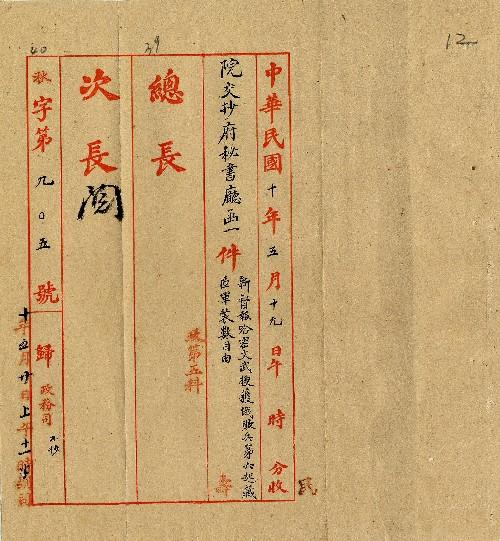 12
39
40
中華民國十年五月十九日午 時 分收
院交抄府秘書廳函一件
新督報哈密文武搜獲
俄敗兵第
軍裝數目由
壽
民
總長
發第五科
次長
閱
秋字第九〇五號
歸政務司
十年五月廿日上午十一時